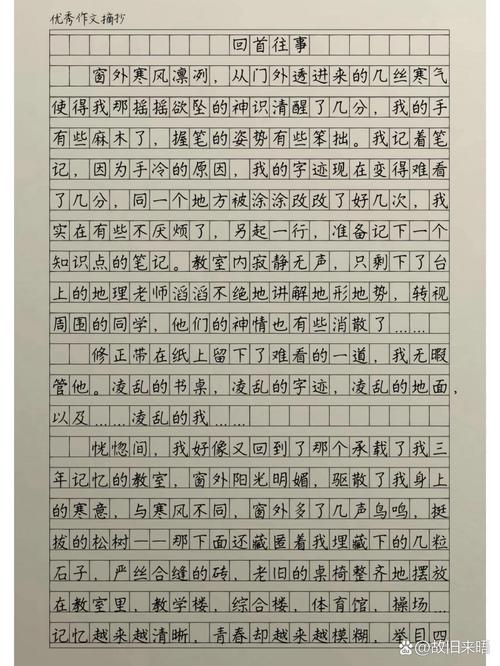 优秀作文摘抄
回首往事
窗外寒风凛冽，从门外透进来的几丝寒气
使得我那摇摇欲坠的神识清醒了几分，我的手
有些麻木了，握笔的姿势有些笨拙。我记着笔
记，因为手冷的原因，我的字迹现在变得难看
了几分，同一个地方被涂涂改改了好几次，我
实在有些不厌烦了，另起一行，准备记下一个
知识点的笔记。教室内寂静无声，只剩下了台
上的地理老师滔滔不绝地讲解地形地势，转视
周围的同学，他们的神情也有些消散了……
修正带在纸上留下了难看的一道，我无暇
管他。凌乱的书桌，凌乱的字迹，凌乱的地面，
以及……凌乱的我……
恍惚间，我好像又回到了那个承载了我三
年记忆的教室，窗外阳光明媚，驱散了我身上
的寒意，与寒风不同，窗外多了几声鸟鸣，挺
拔的松树——那下面还藏匿着我埋藏下的几粒
石子，严丝合缝的砖，老旧的桌椅整齐地摆放
在教室里，教学楼，综合楼，体育馆，操场…
记忆越来越清晰，青春却越来越模糊，举目四
@故旧来晤